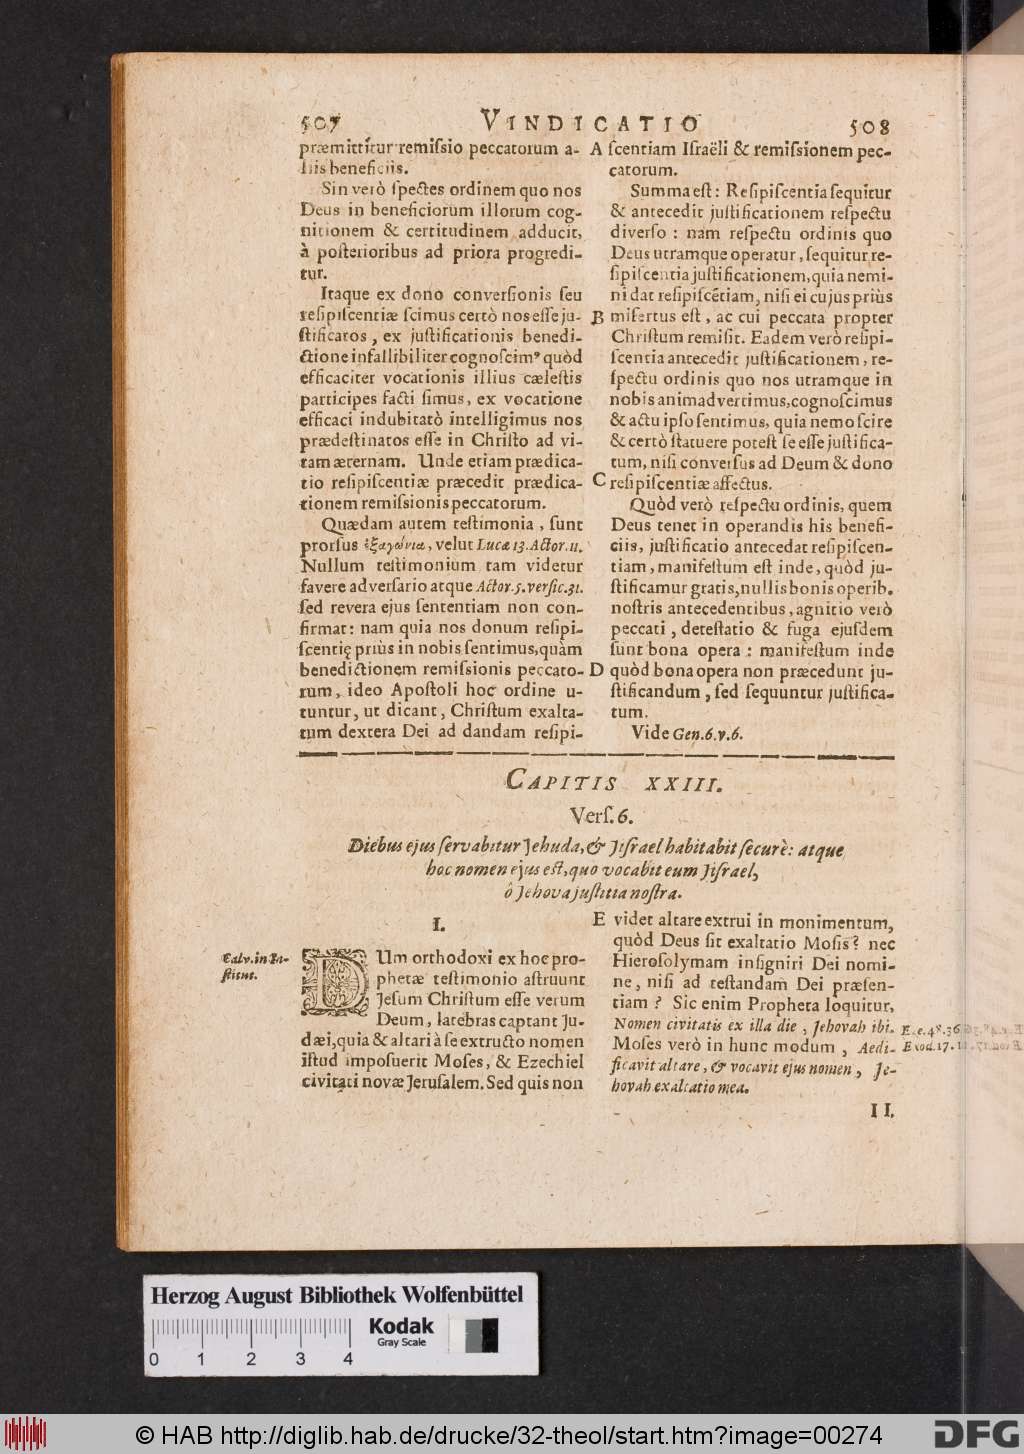 507 VINDICATIO 508
præmittitur remiſsio peccatorum a-
liis beneficiis.
Sin verò ſpectes ordinem quo nos
Deus in beneficiorum illorum cog-
nitionem & certitudinem adducit,
à poſterioribus ad priora progredi-
tur.
Itaque ex dono converſionis ſeu
reſipiſcentiæ ſcimus certò nos eſſe ju-
ſtificatos, ex juſtificationis benedi-
ctione infallibiliter cognoſcimꝰ quòd
efficaciter vocationis illius cæleſtis
participes facti ſimus, ex vocatione
efficaci indubitatò intelligimus nos
prædeſtinatos eſſe in Chriſto ad vi-
tam æternam. Unde etiam prædica-
tio reſipiſcentiæ præcedit prædica-
tionem remiſsionis peccatorum.
Quædam autem teſtimonia, ſunt
prorſus ἑξαγώνια, velut Lucæ 13. Actor. 11.
Nullum teſtimonium tam videtur
favere adverſario atque Actor. 5. verſic. 31.
ſed revera ejus ſententiam non con-
firmat: nam quia nos donum reſipi-
ſcentię priùs in nobis ſentimus, quàm
benedictionem remiſsionis peccato-
rum, ideo Apoſtoli hoc ordine u-
tuntur, ut dicant, Chriſtum exalta-
tum dextera Dei ad dandam reſipi-
A ſcentiam Iſraëli & remiſsionem pec-
catorum.
Summa eſt: Reſipiſcentia ſequitur
& antecedit juſtificationem reſpectu
diverſo: nam reſpectu ordinis quo
Deus utramque operatur, ſequitur re-
ſipiſcentia juſtificationem, quia nemi-
ni dat reſipiſcẽtiam, niſi ei cujus priùs
B miſertus eſt, ac cui peccata propter
Chriſtum remiſit. Eadem verò reſipi-
ſcentia antecedit juſtificationem, re-
ſpectu ordinis quo nos utramque in
nobis animadvertimus, cognoſcimus
& actu ipſo ſentimus, quia nemo ſcire
& certò ſtatuere poteſt ſe eſſe juſtifica-
tum, niſi converſus ad Deum & dono
C reſipiſcentiæ affectus.
Quòd verò reſpectu ordinis, quem
Deus tenet in operandis his benefi-
ciis, juſtificatio antecedat reſipiſcen-
tiam, manifeſtum eſt inde, quòd ju-
ſtificamur gratis, nullis bonis operib.
noſtris antecedentibus, agnitio verò
peccati, deteſtatio & fuga ejuſdem
ſunt bona opera: manifeſtum inde
D quòd bona opera non præcedunt ju-
ſtificandum, ſed ſequuntur juſtifica-
tum.
Vide Gen. 6. v. 6.
CAPITIS XXIII.
Verſ. 6.
Diebus ejus ſervabitur Jehuda, & Jiſrael habitabit ſecurè: atque
hoc nomen ejus eſt, quo vocabit eum Jiſrael,
ô Jehova juſtitia noſtra.
I.
Calv. in In-
ſtitut.
DUm orthodoxi ex hoc pro-
phetæ teſtimonio aſtruunt
Jeſum Chriſtum eſſe verum
Deum, latebras captant Ju-
dæi, quia & altari à ſe extructo nomen
iſtud impoſuerit Moſes, & Ezechiel
civitati novæ Jeruſalem. Sed quis non
E videt altare extrui in monimentum,
quòd Deus ſit exaltatio Moſis? nec
Hieroſolymam inſigniri Dei nomi-
ne, niſi ad teſtandam Dei præſen-
tiam? Sic enim Propheta loquitur,
Nomen civitatis ex illa die, Jehovah ibi.
Moſes verò in hunc modum, Aedi-
ficavit altare, & vocavit ejus nomen, Je-
hovah exaltatio mea.
E.e. 48. 36
Exod. 17.
II.
Herzog August Bibliothek Wolfenbüttel
Kodak
Gray Scale
0 1 2 3 4
© HAB http://diglib.hab.de/drucke/32-theol/start.htm?image=00274
DFG